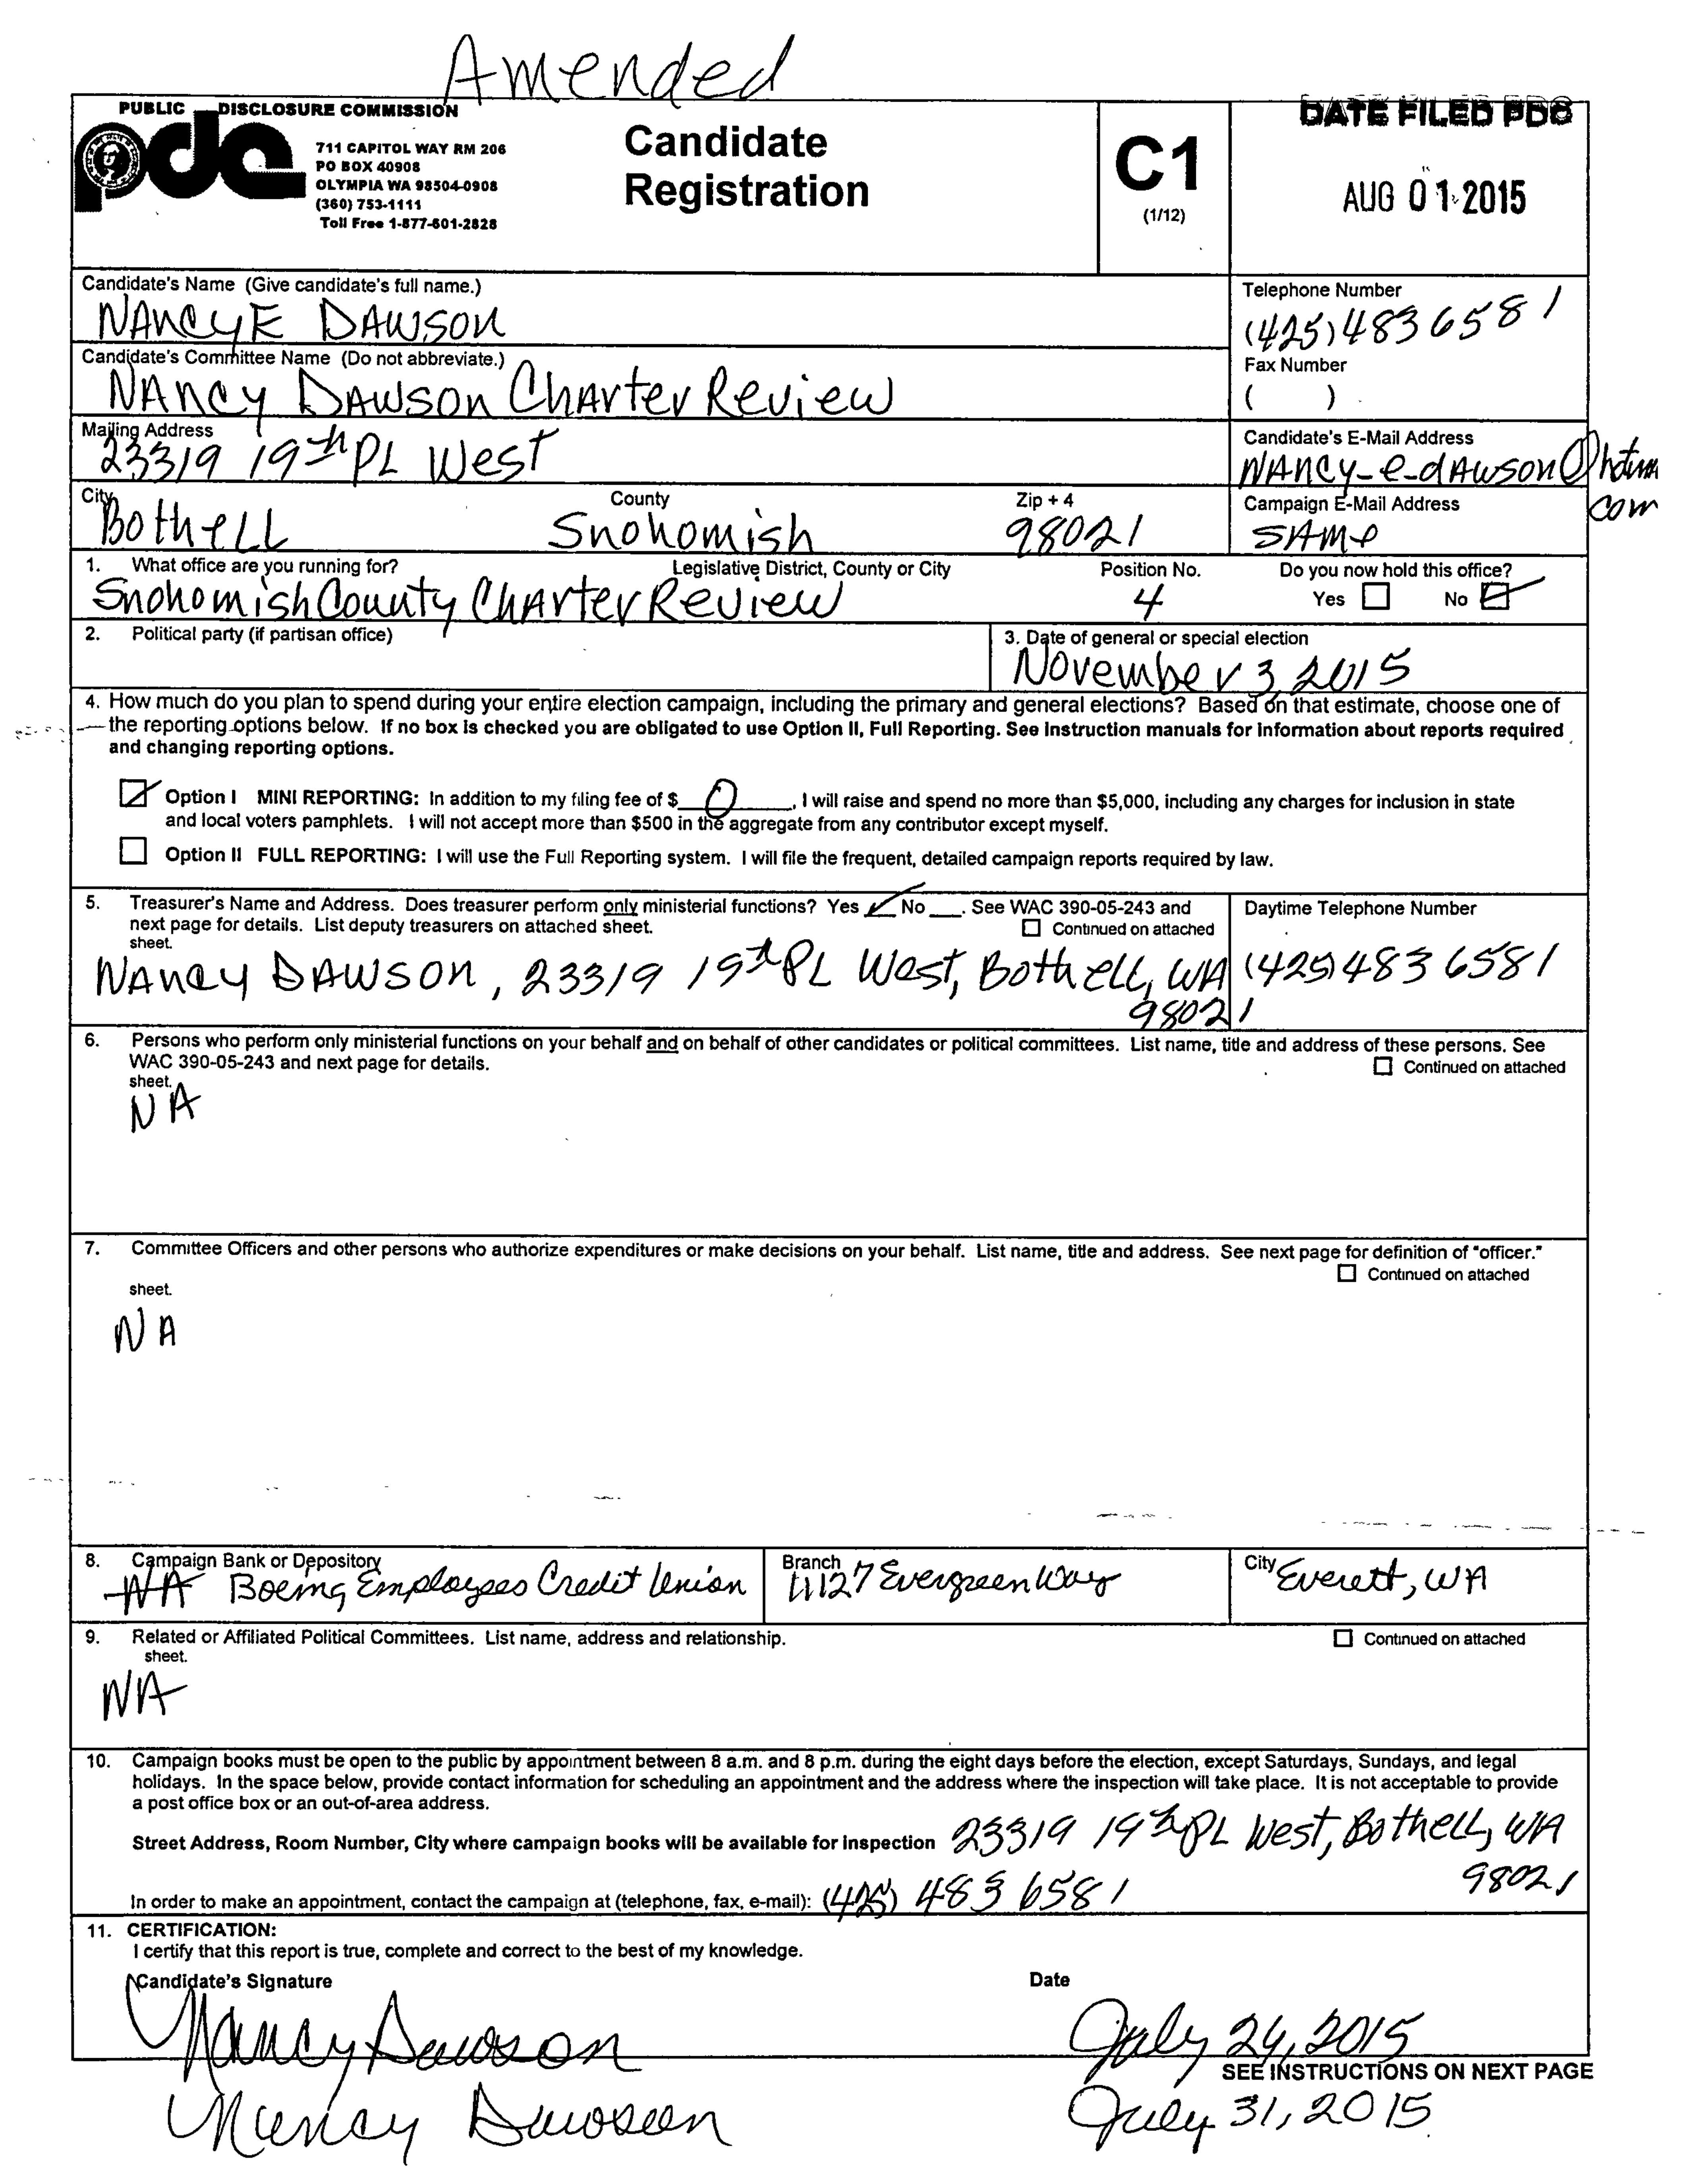 Amended
PUBLIC DISCLOSURE COMMISSION
pdc
711 CAPITOL WAY RM 206
PO BOX 40908
OLYMPIA WA 98504-0908
(360) 753-1111
Toll Free 1-877-601-2828
Candidate
Registration
C1
(1/12)
DATE FILED PDC
AUG 01 2015
Candidate's Name (Give candidate's full name.)
NANCY E DAWSON
Telephone Number
(425) 483 6581
Candidate's Committee Name (Do not abbreviate.)
NANCY DAWSON Charter Review
Fax Number
( )
Mailing Address
23319 19th PL West
Candidate's E-Mail Address
NANCY-e-dAWSON@hotm
com
City County Zip + 4
Bothell Snohomish 98021
Campaign E-Mail Address
SAMe
1. What office are you running for? Legislative District, County or City Position No. Do you now hold this office?
Snohomish County Charter Review 4 Yes No
2. Political party (if partisan office)
3. Date of general or special election
November 3, 2015
4. How much do you plan to spend during your entire election campaign, including the primary and general elections? Based on that estimate, choose one of
the reporting options below. If no box is checked you are obligated to use Option II, Full Reporting. See instruction manuals for information about reports required
and changing reporting options.
Option I MINI REPORTING: In addition to my filing fee of $ 0 , I will raise and spend no more than $5,000, including any charges for inclusion in state
and local voters pamphlets. I will not accept more than $500 in the aggregate from any contributor except myself.
Option II FULL REPORTING: I will use the Full Reporting system. I will file the frequent, detailed campaign reports required by law.
5. Treasurer's Name and Address. Does treasurer perform only ministerial functions? Yes No ___. See WAC 390-05-243 and
next page for details. List deputy treasurers on attached sheet. Continued on attached
sheet.
NANCY DAWSON, 23319 19th PL West, Bothell, WA
98021
Daytime Telephone Number
(425) 483 6581
6. Persons who perform only ministerial functions on your behalf and on behalf of other candidates or political committees. List name, title and address of these persons. See
WAC 390-05-243 and next page for details. Continued on attached
sheet.
NA
7. Committee Officers and other persons who authorize expenditures or make decisions on your behalf. List name, title and address. See next page for definition of "officer."
Continued on attached
sheet.
NA
8. Campaign Bank or Depository Branch City
NA Boeing Employees Credit Union 11127 Evergreen Way Everett, WA
9. Related or Affiliated Political Committees. List name, address and relationship. Continued on attached
sheet.
NA
10. Campaign books must be open to the public by appointment between 8 a.m. and 8 p.m. during the eight days before the election, except Saturdays, Sundays, and legal
holidays. In the space below, provide contact information for scheduling an appointment and the address where the inspection will take place. It is not acceptable to provide
a post office box or an out-of-area address.
Street Address, Room Number, City where campaign books will be available for inspection 23319 19th PL West, Bothell, WA
98021
In order to make an appointment, contact the campaign at (telephone, fax, e-mail): (425) 483 6581
11. CERTIFICATION:
I certify that this report is true, complete and correct to the best of my knowledge.
Candidate's Signature Date
Nancy Dawson July 24, 2015
SEE INSTRUCTIONS ON NEXT PAGE
Nancy Dawson July 31, 2015